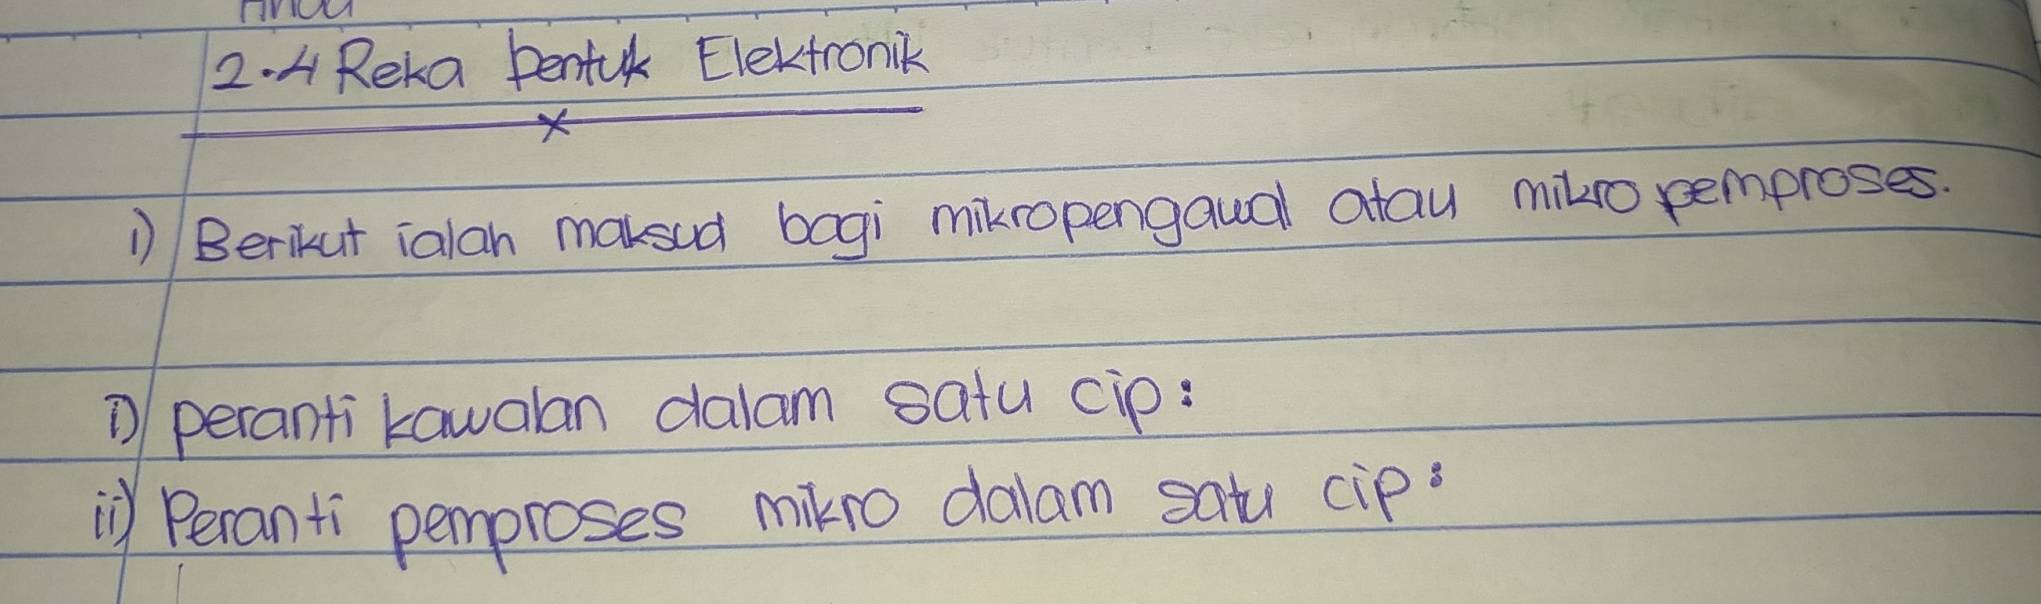 2.4 Reka bentuk Elektronik
1) Berikut ialah maksud bagi mikropengawal atau mikropemproses.
i) peranti kawalan dalam satu cip:
ii) Peranti pemproses mikro dalam satu cip: